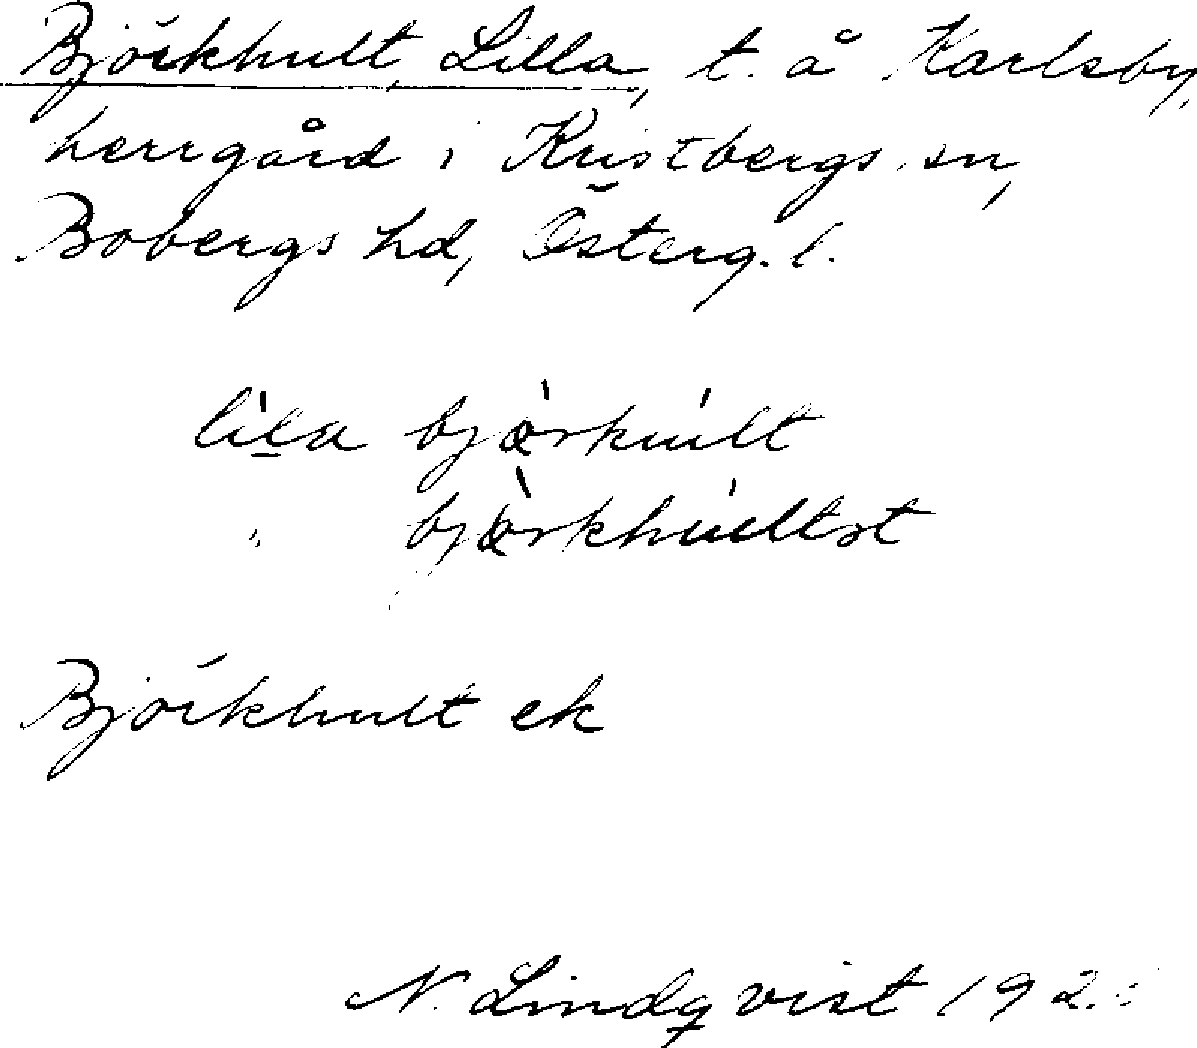 Björkhult, Lilla, t. å Karlsby,
herrgård i Kristbergs sn,
Bobergs hd, Österg. l.
björkhult
Björkhult ek
N. Lindqvist